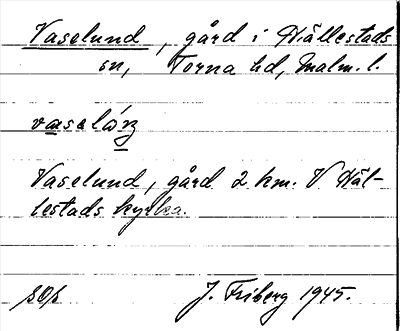 Vaselund, gård i Hällestads
sn, Torna hd, Malm. l.
Vaselund, gård 2 km. V Häl-
lestads kyrka.
J. Friberg 1945.